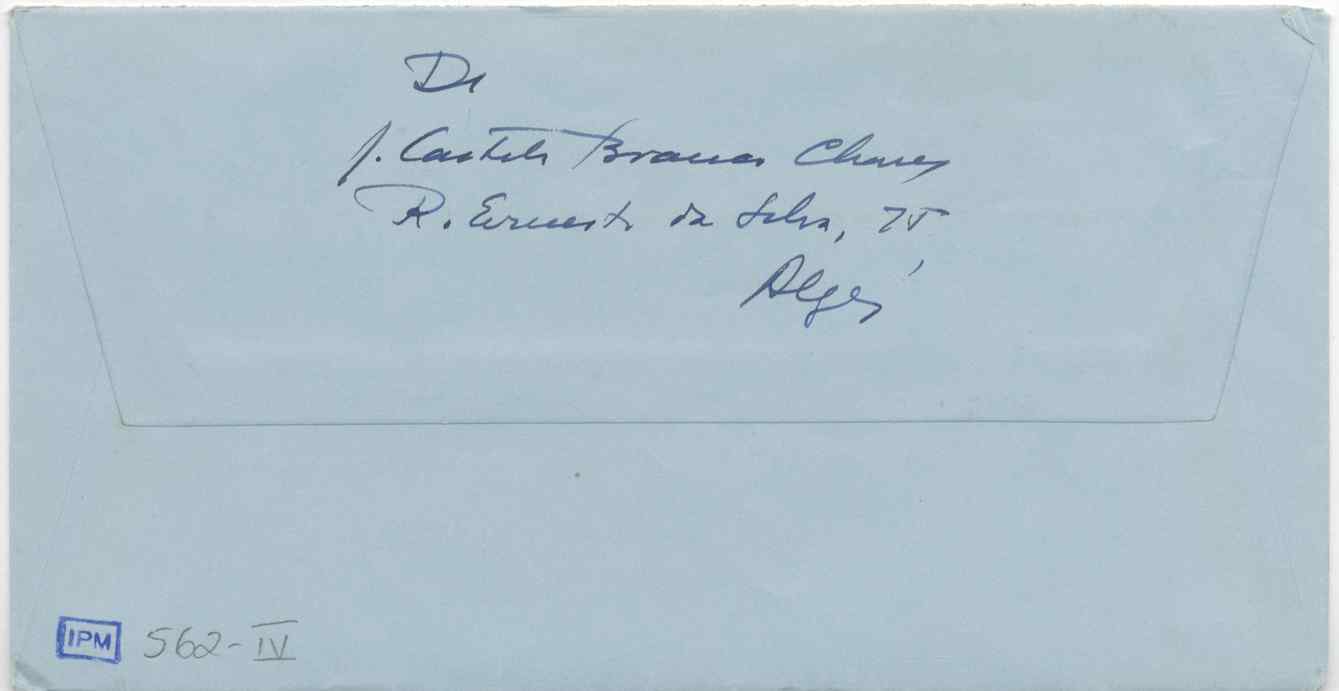 De
J. Castelo Branco Chaves
R. Ernesto da Silva, 75,
Algés
IPM 562-IV